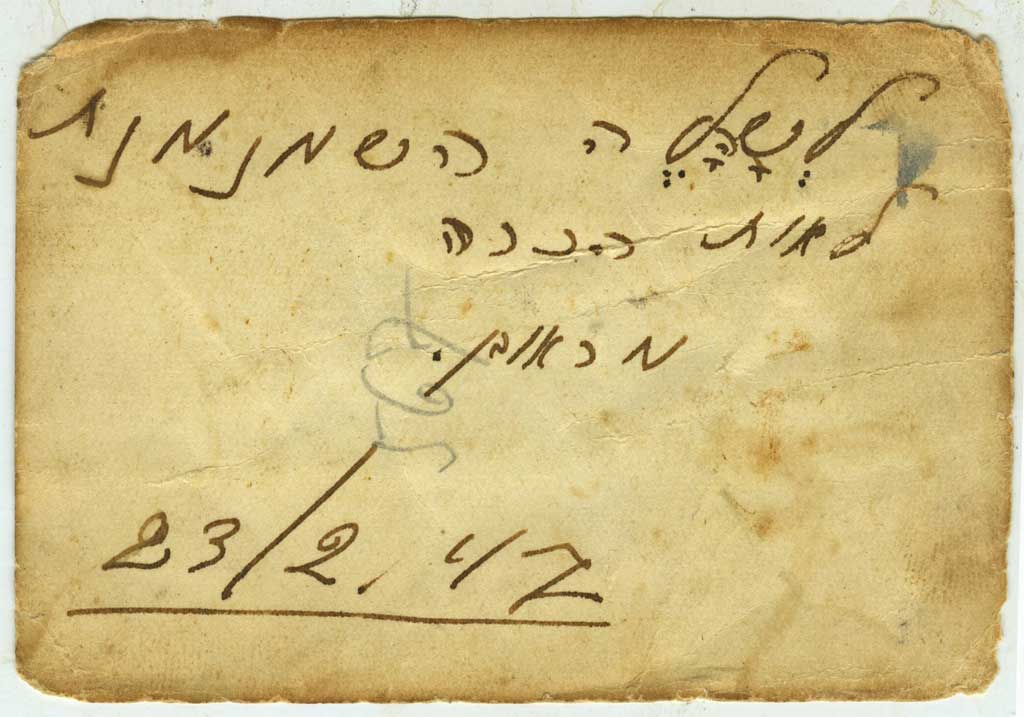 לְשָהָלֶה השמנמנת
לאות
מראובן.
23/2.47